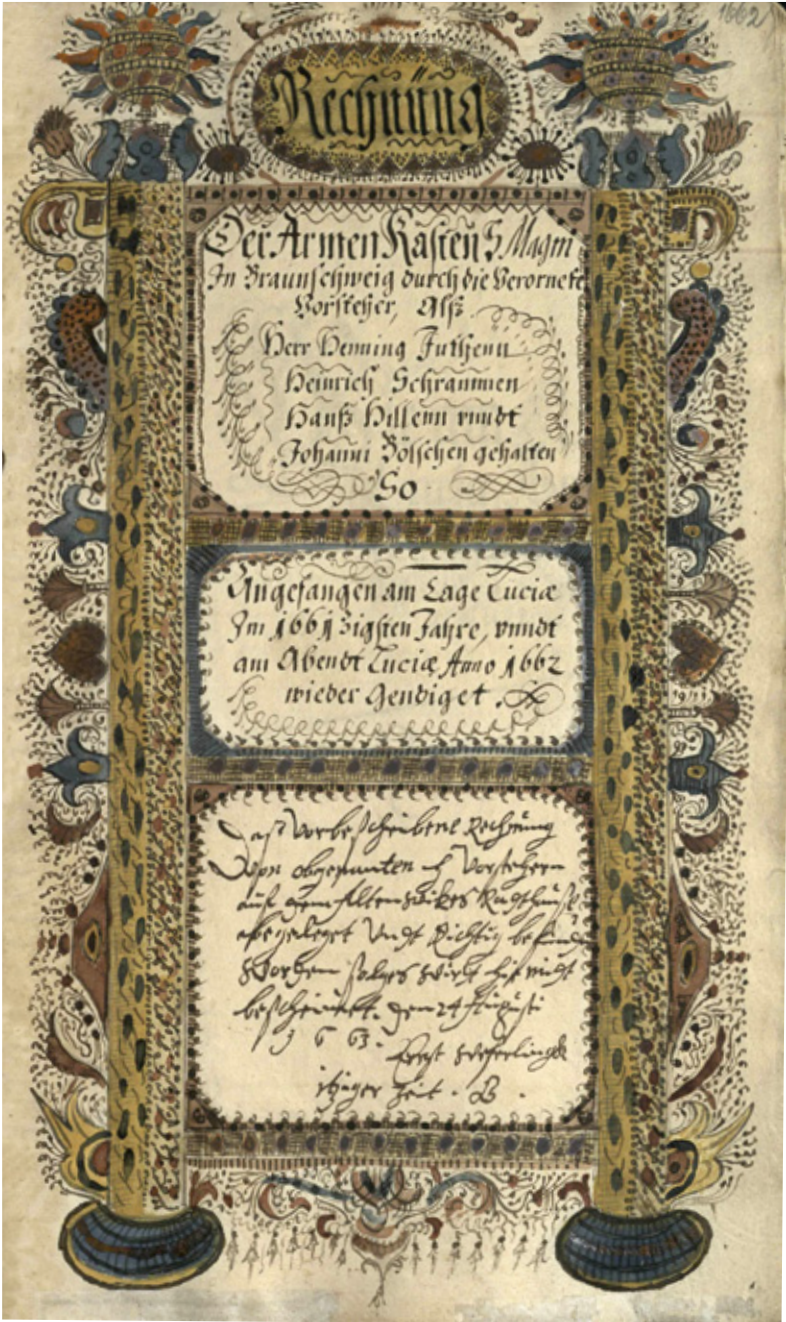 1662
Rechnüng
Der Armen Kasten S Magni
In Braunschweig durch die Verornete
Vorsteher, Alß
Herr Henning
Heinrich Schrammen
Hanß Hillenn vnndt
Johanni Bölschen gehalten
So
Angefangen am Tage Luciæ
Im 1661zigsten Jahre, vnndt
am Abendt Luciæ Anno 1662
wieder Gendiget.
Daß vorbeschribene Rechnung
Von obgenanten H Vorstehern
auf dem Altenwikes Radthuse
abgeleget Vndt Richtig befunden
Worden solches wirt hie mitt
bescheiniget. Den 24 Augusti
1663.
itziger Zeit. B.